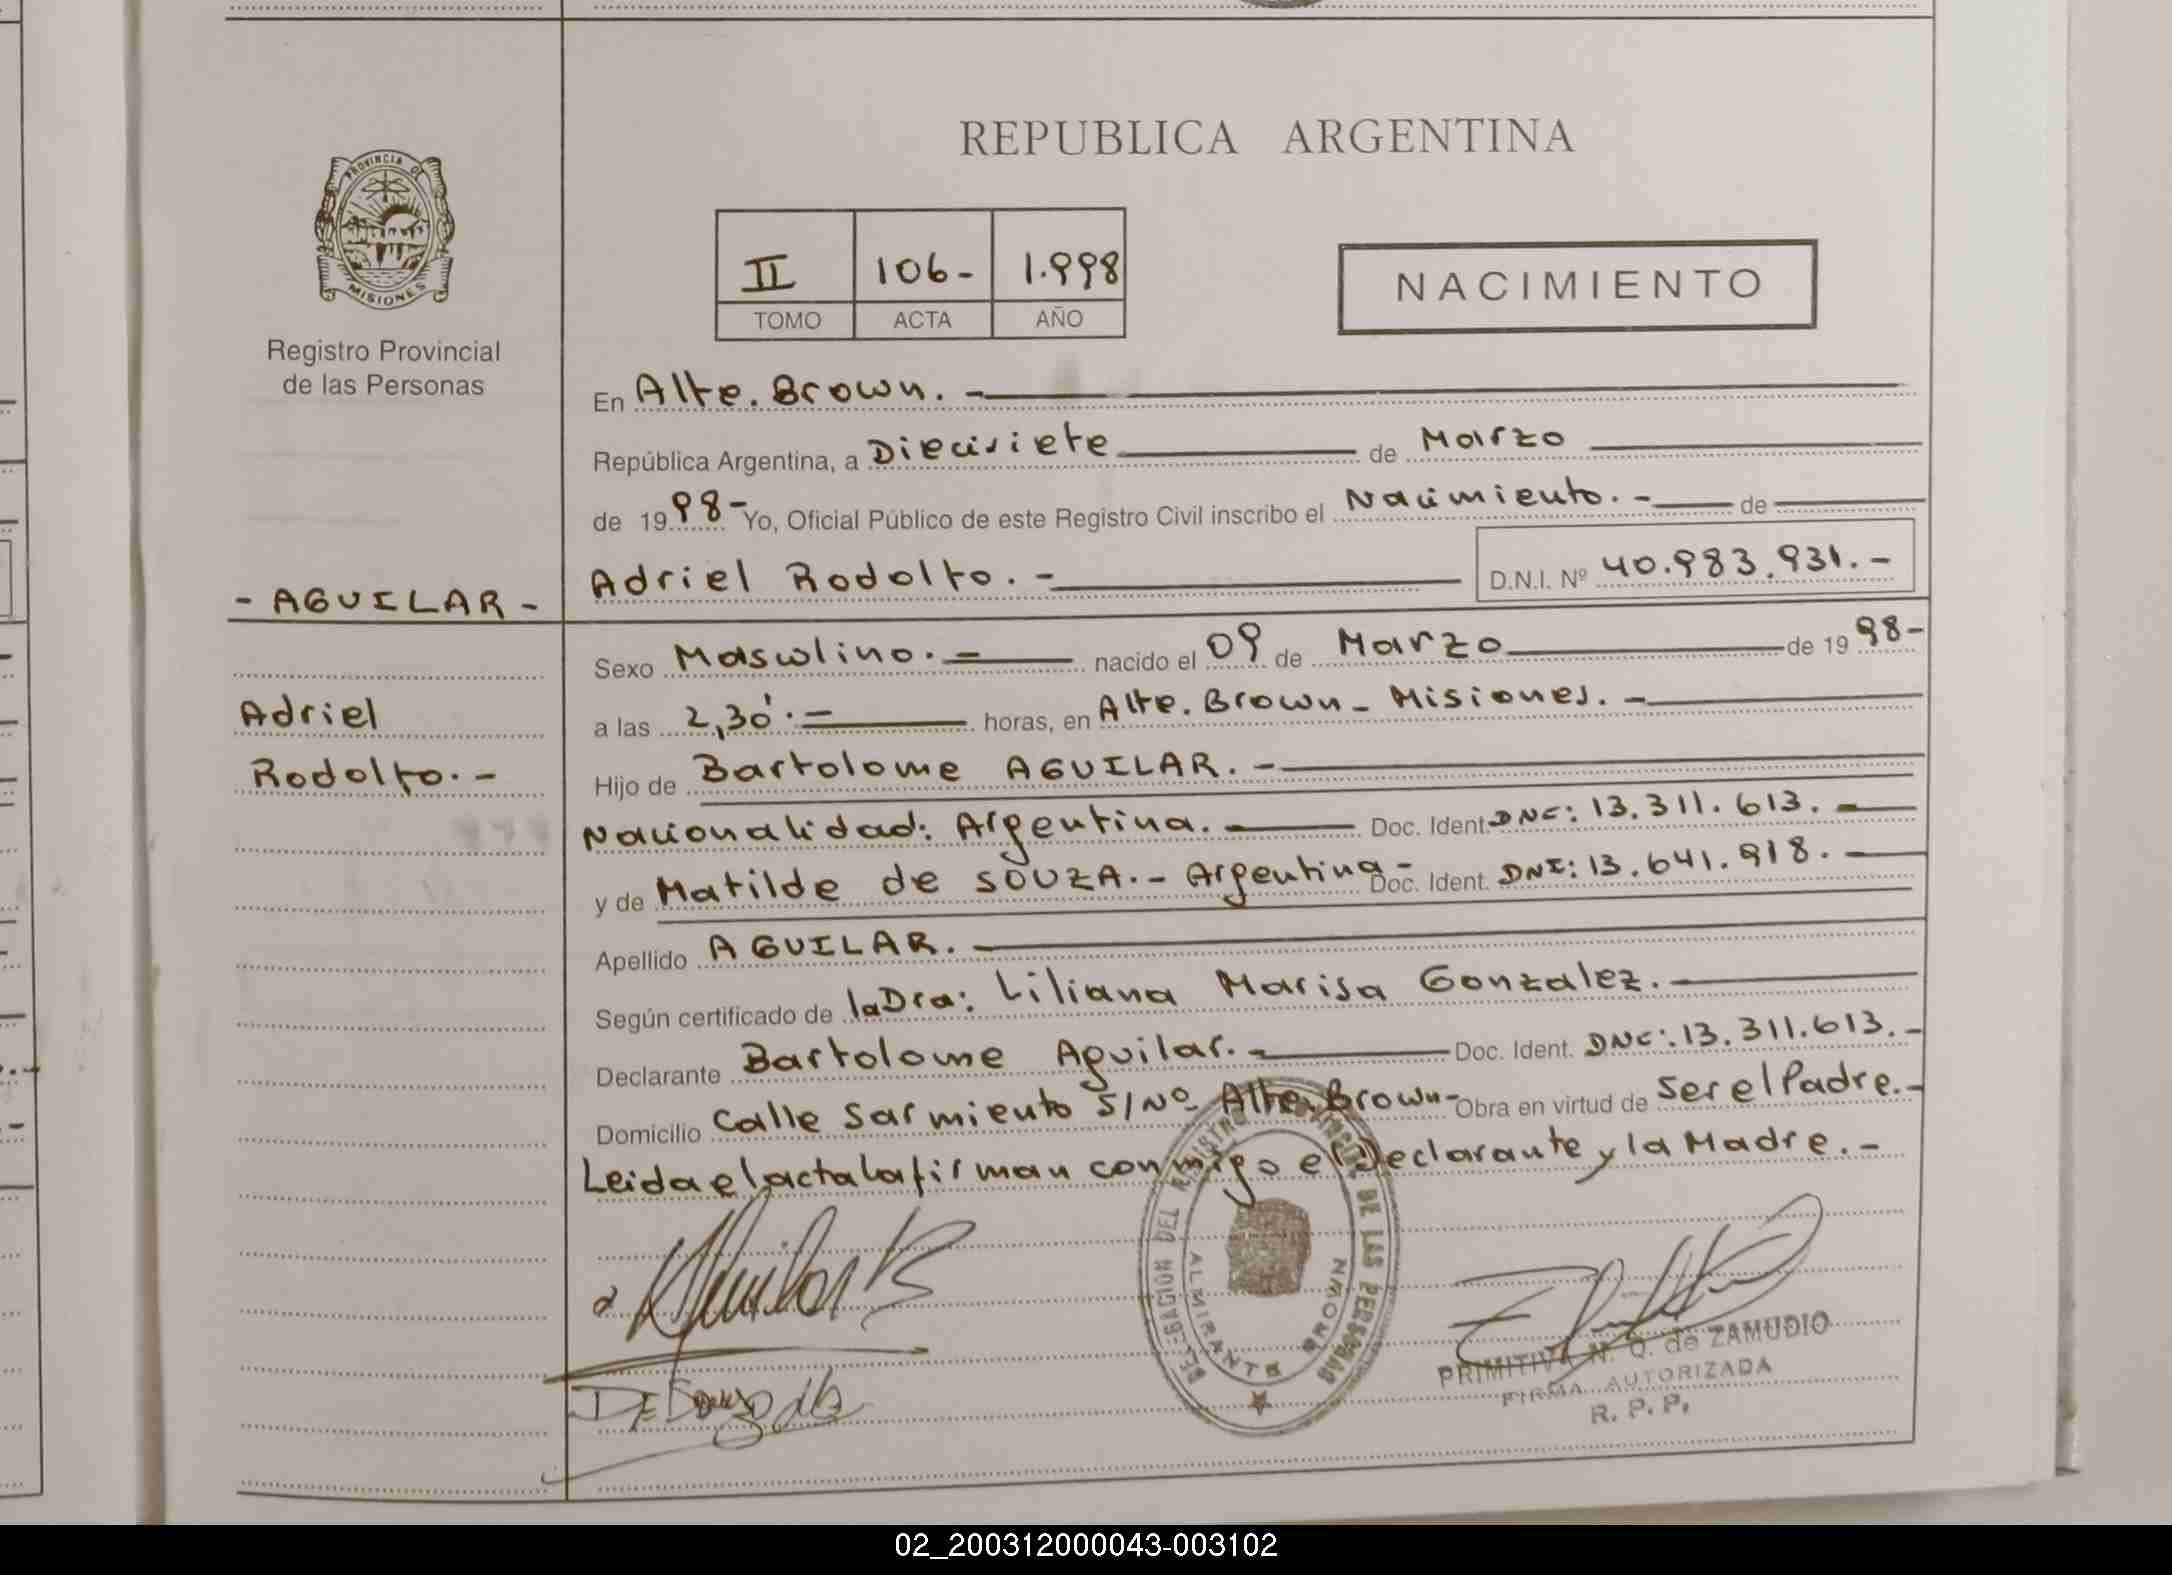 REPUBLICA ARGENTINA
PROVINCIA DE MISIONES
Registro Provincial
de las Personas
II 106- 1.998
TOMO ACTA AÑO
NACIMIENTO
En Alte. Brown. -
República Argentina, a Diecisiete de Marzo
de 1998- Yo, Oficial Público de este Registro Civil inscribo el Nacimiento. - de
Adriel Rodolfo. - D.N.I. Nº 40.983.931. -
- AGUILAR -
Adriel
Rodolfo. -
Sexo Masculino. - nacido el 09 de Marzo de 1998-
a las 2,30'. - horas, en Alte. Brown - Misiones. -
Hijo de Bartolome AGUILAR. -
Nacionalidad: Argentina. - Doc. Ident. DNI: 13.311.613. -
y de Matilde de SOUZA. - Argentina - Doc. Ident. DNI: 13.641.918. -
Apellido AGUILAR. -
Según certificado de la Dra: Liliana Marisa Gonzalez. -
Declarante Bartolome Aguilar. - Doc. Ident. DNI: 13.311.613. -
Domicilio Calle Sarmiento S/Nº Alte. Brown- Obra en virtud de Ser el Padre. -
Leida el acta la firman conmigo el Declarante y la Madre. -
DELEGACION DEL REGISTRO PROVINCIAL DE LAS PERSONAS
ALMIRANTE BROWN
PRIMITIVA N. Q. de ZAMUDIO
FIRMA AUTORIZADA
R. P. P.
02_200312000043-003102